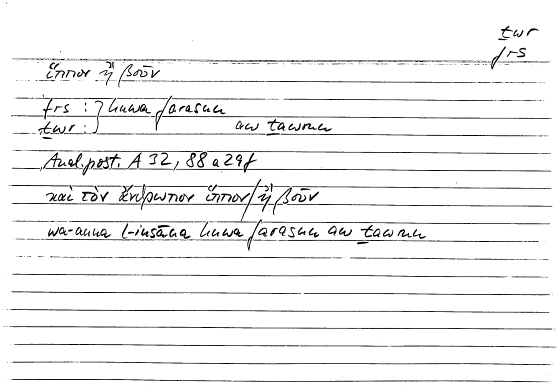 ṯwr
frs
ἵππον ἢ βοῦν
frs : } huwa farasun
ṯwr : } aw ṯawrun
Anal. post. A 32, 88 a 29f
καὶ τὸν ἄνθρωπον ἵππον/ἢ βοῦν
wa-anna l-insāna huwa farasun aw ṯawrun